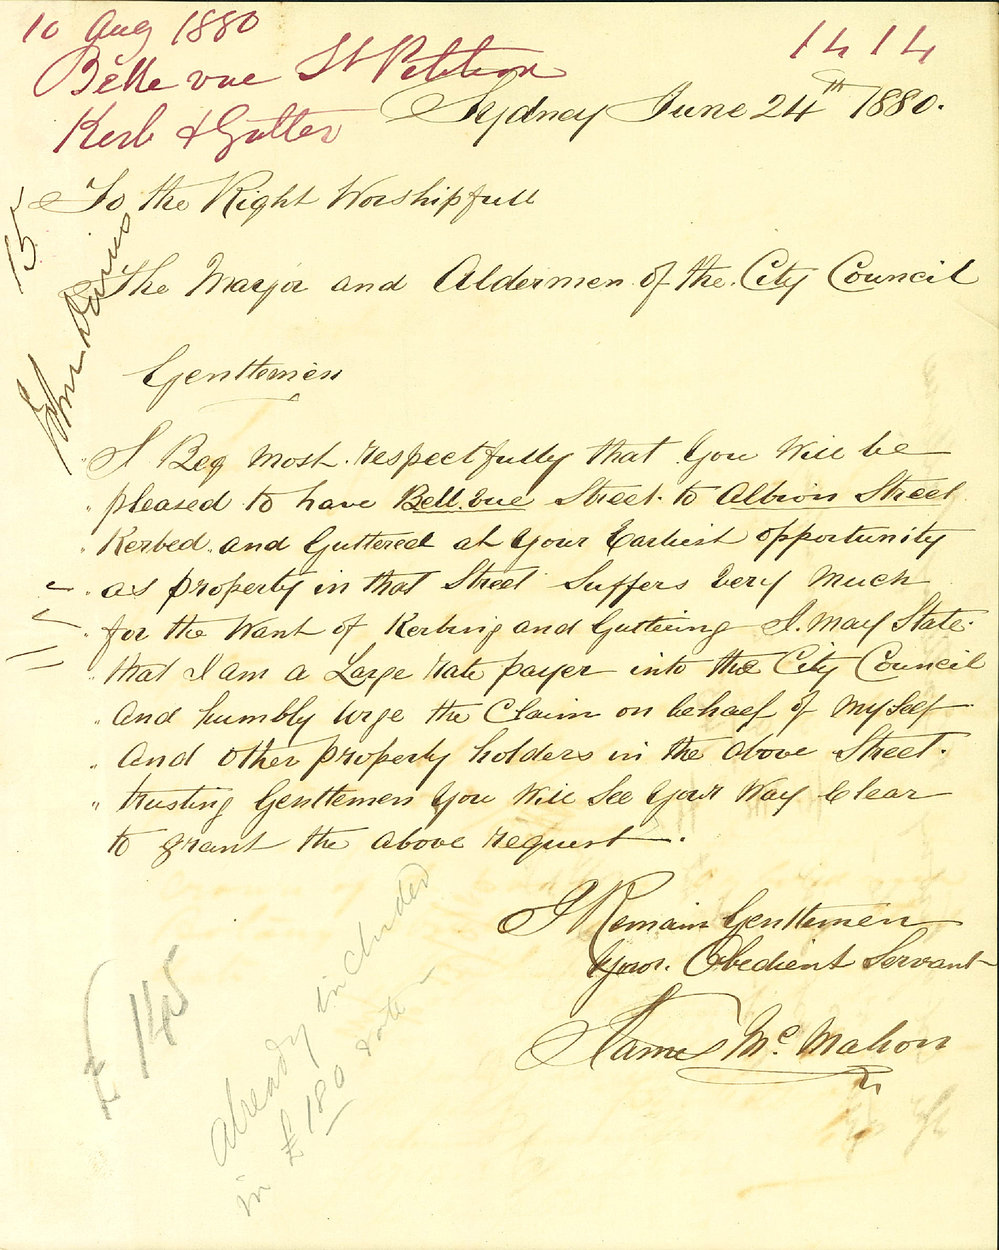 10 Aug 1880
1414
Belle vue St Petition
Kerb & Gutter
Sydney June 24th 1880.
To the Right Worshipfull
The Mayor and Aldermen of the City Council
Gentlemen
I Beg most respectfully that you Will be
pleased to have Bell.vue Street to Albion Street
Kerbed and Guttered at your Earliest opportunity
as property in that Street Suffers Very Much
for the Want of Kerbing and Guttering I May State
that I am a Large rate payer into the City Council
And humbly urge the Claim on behalf of My Self
And other property holders in the above Street.
trusting Gentlemen you Will See your Way Clear
to grant the above request.
I Remain Gentlemen
your Obedient Servant
James Mc Mahon
15
John
£145
already included
in £180 vote